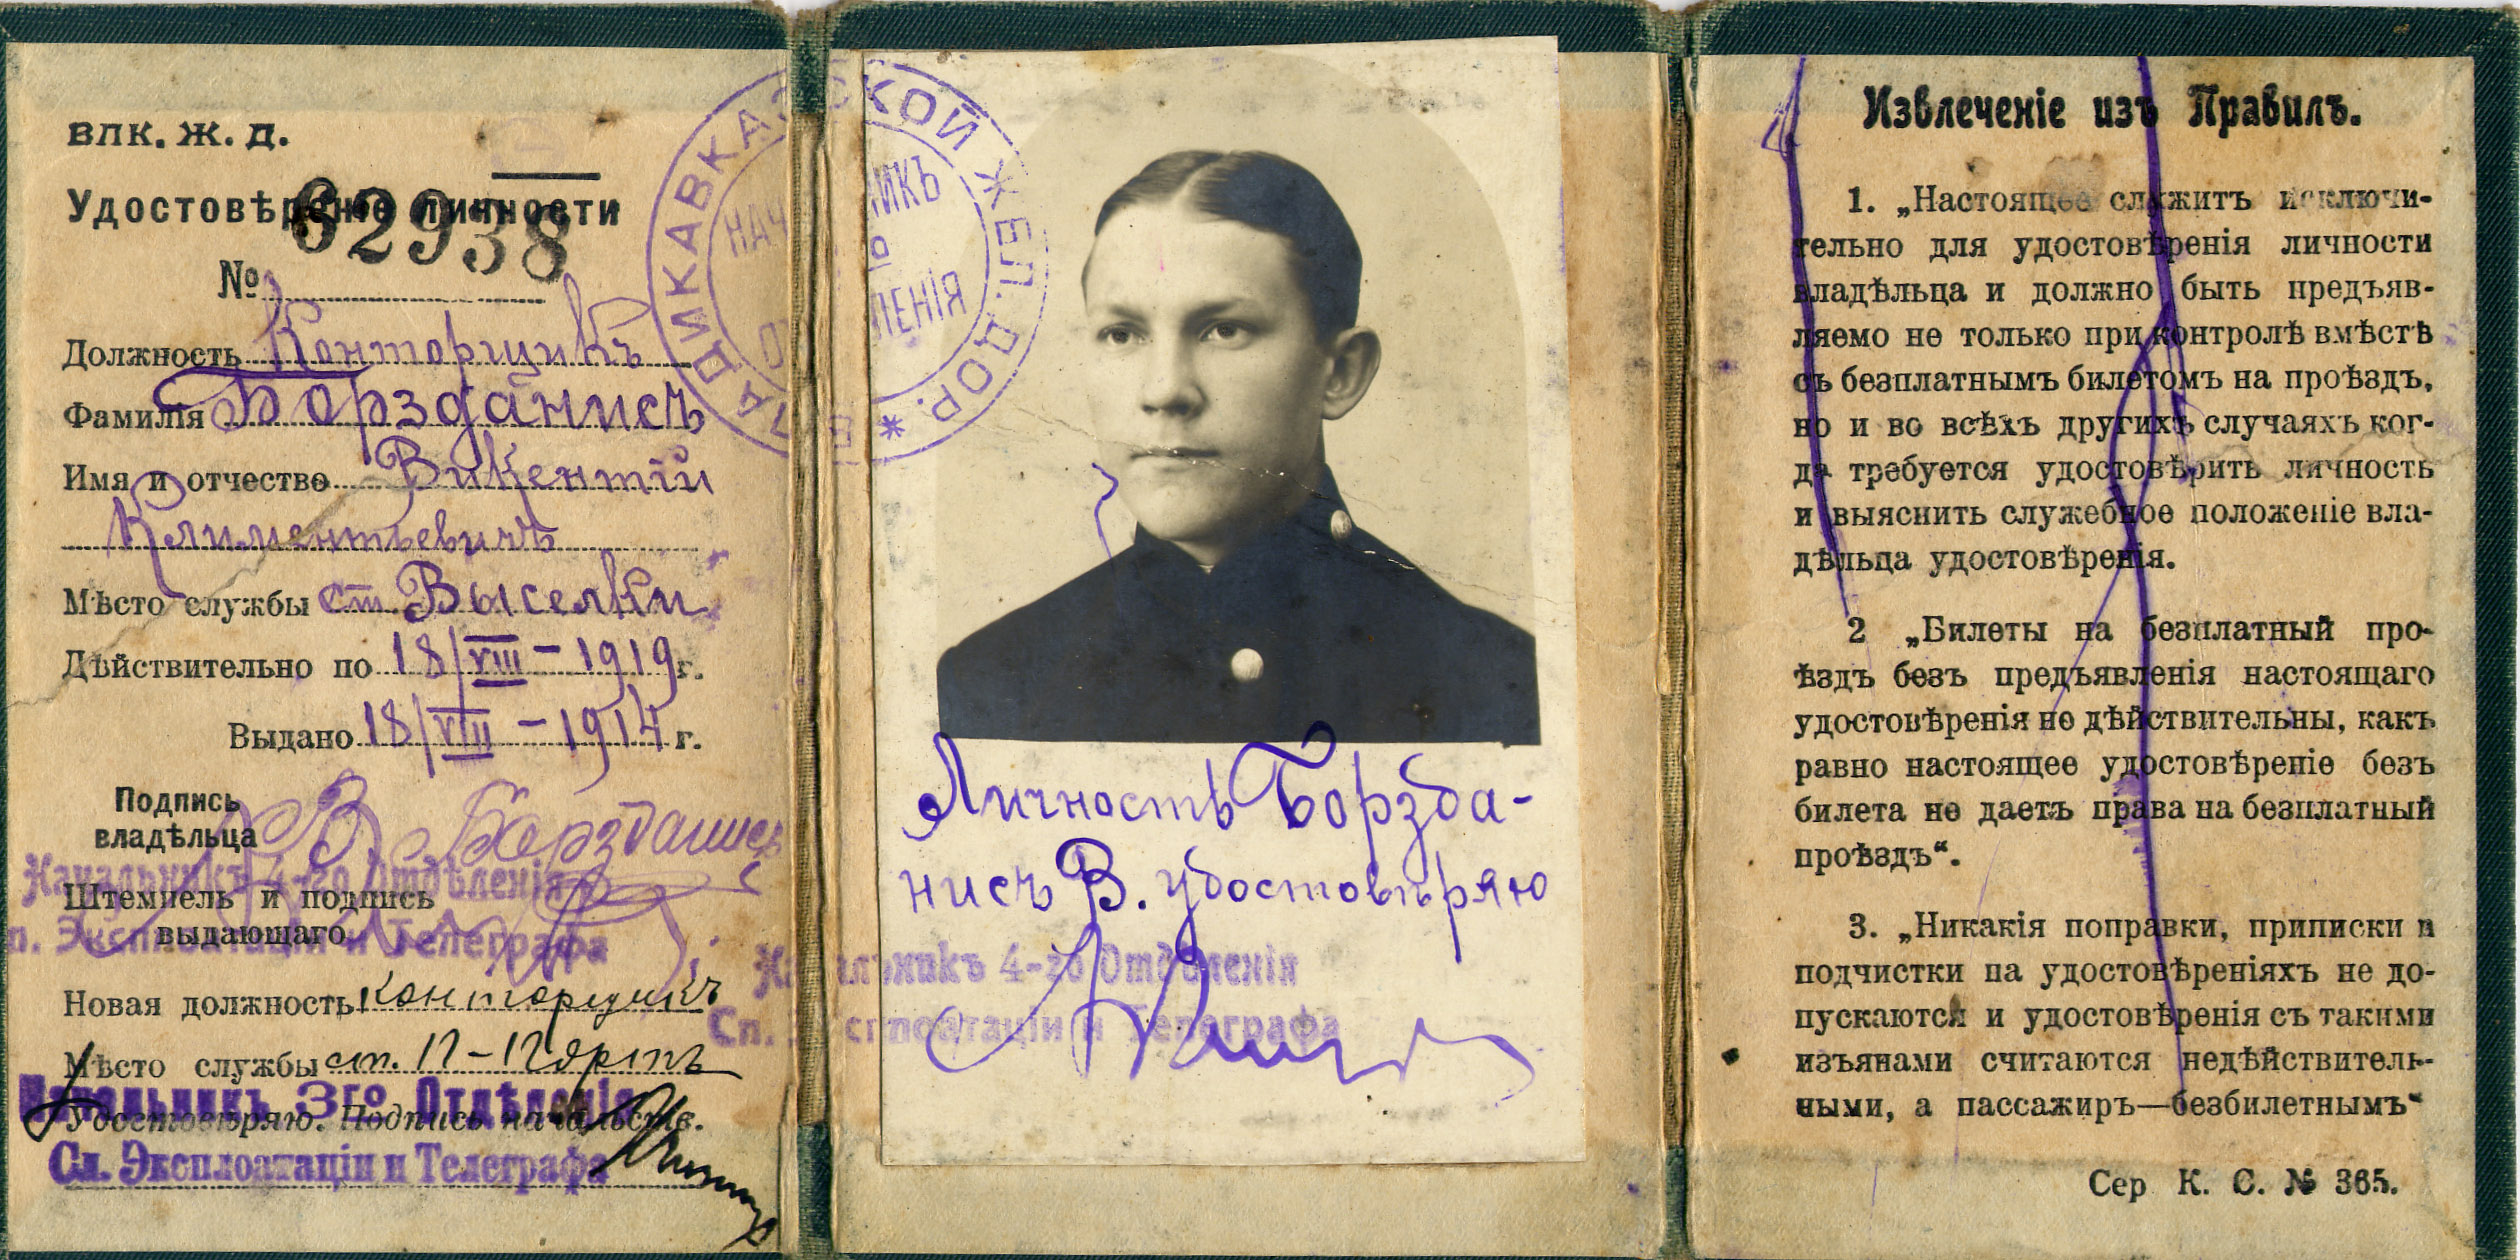 ВЛК. Ж. Д.
Удостовѣреніе личности
№ 62938
Должность Конторщикъ
Фамилія Борзданисъ
Имя и отчество Викентій
Климентьевичъ
Мѣсто службы ст. Выселки
Дѣйствительно по 18/VIII – 1919 г.
Выдано 18/VIII – 1914 г.
Подпись
владѣльца В Борзданисъ
Начальникъ 4-го Отдѣленія
Штемпель и подпись
выдающаго
Сл. Эксплоатаціи и Телеграфа
Новая должность конторщикъ
Мѣсто службы ст.
Начальникъ 3го Отдѣленія
Удостовѣряю. Подпись начальств.
Сл. Эксплоатаціи и Телеграфа
ВЛАДИКАВКАЗСКОЙ ЖЕЛ. ДОР. *
НАЧАЛЬНИКЪ
ОТДѢЛЕНІЯ
Личность Борзда-
нисъ В. удостовѣряю
Начальникъ 4-го Отдѣленія
Сл. Эксплоатаціи и Телеграфа
Извлеченіе изъ Правилъ.
1. „Настоящее служитъ исключи-
тельно для удостовѣренія личности
владѣльца и должно быть предъяв-
ляемо не только при контролѣ вмѣстѣ
съ безплатнымъ билетомъ на проѣздъ,
но и во всѣхъ другихъ случаяхъ ког-
да требуется удостовѣрить личность
и выяснить служебное положеніе вла-
дѣльца удостовѣренія.
2 „Билеты на безплатный про-
ѣздъ безъ предъявленія настоящаго
удостовѣренія не дѣйствительны, какъ
равно настоящее удостовѣреніе безъ
билета не даетъ права на безплатный
проѣздъ“.
3. „Никакія поправки, приписки и
подчистки на удостовѣреніяхъ не до-
пускаются и удостовѣренія съ такими
изъянами считаются недѣйствитель-
ными, а пассажиръ—безбилетнымъ“
Сер К. С. № 365.